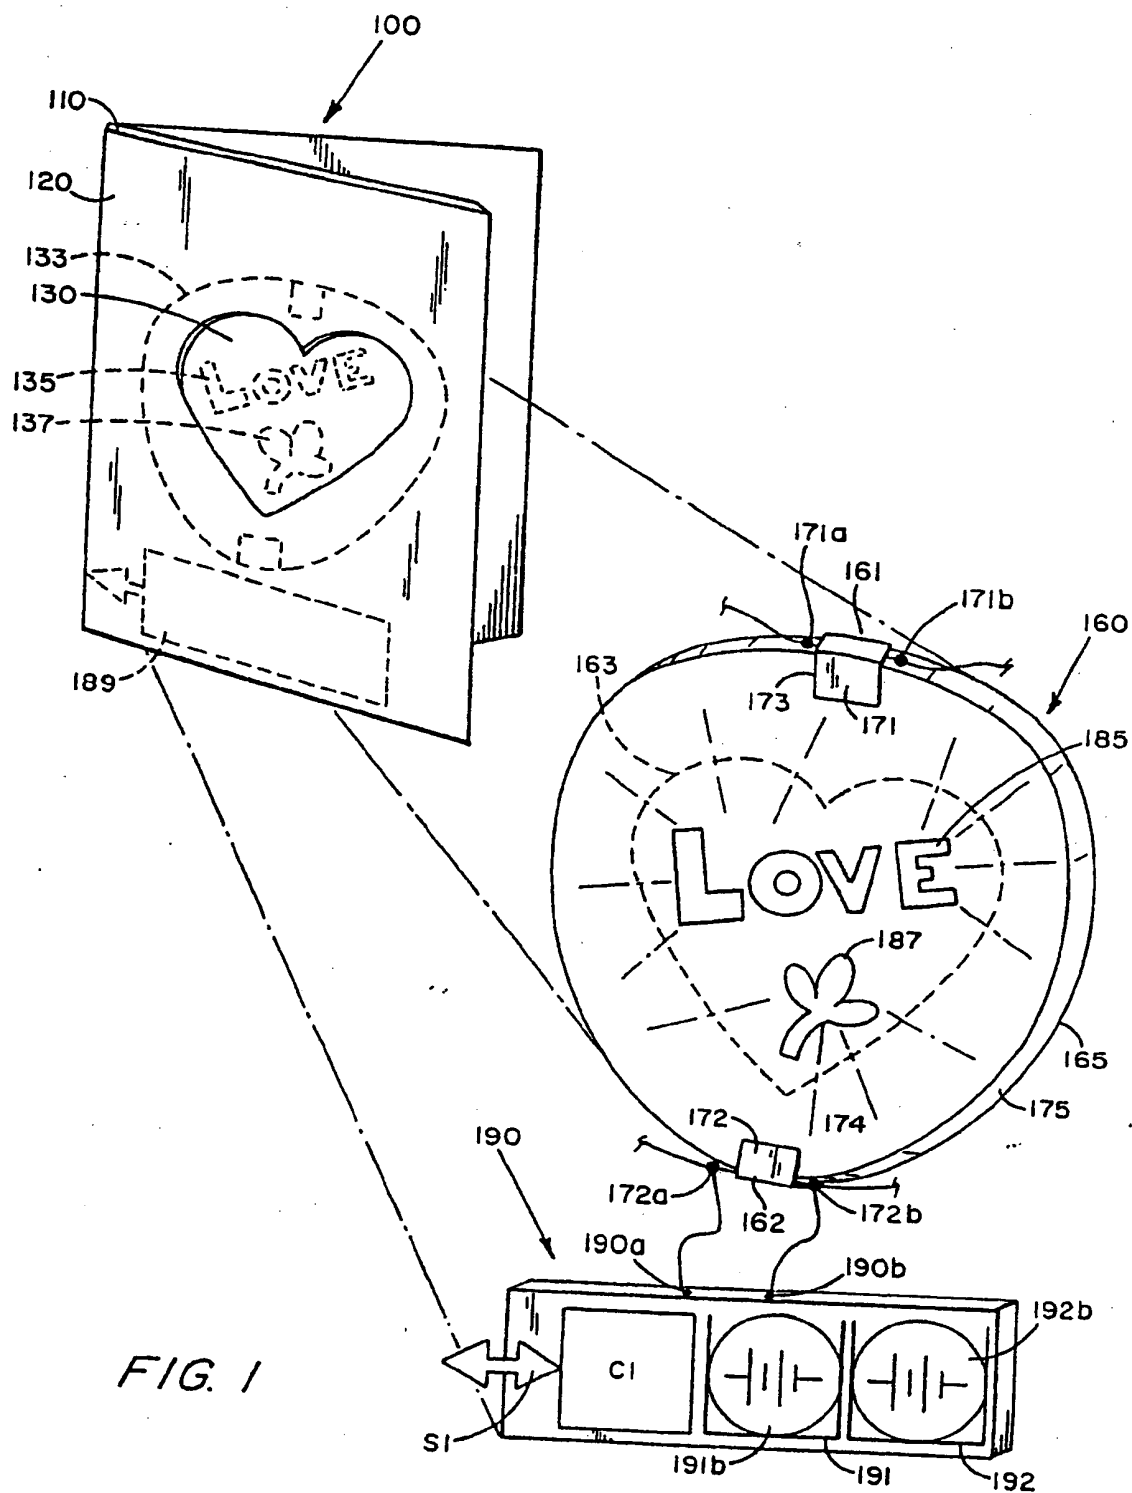 100
110
120
133
130
LOVE
135
137
171a
161
171b
160
163
173
171
189
185
LOVE
187
165
175
172
174
190
172a
162
172b
190a
190b
192b
C1
FIG. 1
S1
191b
191
192